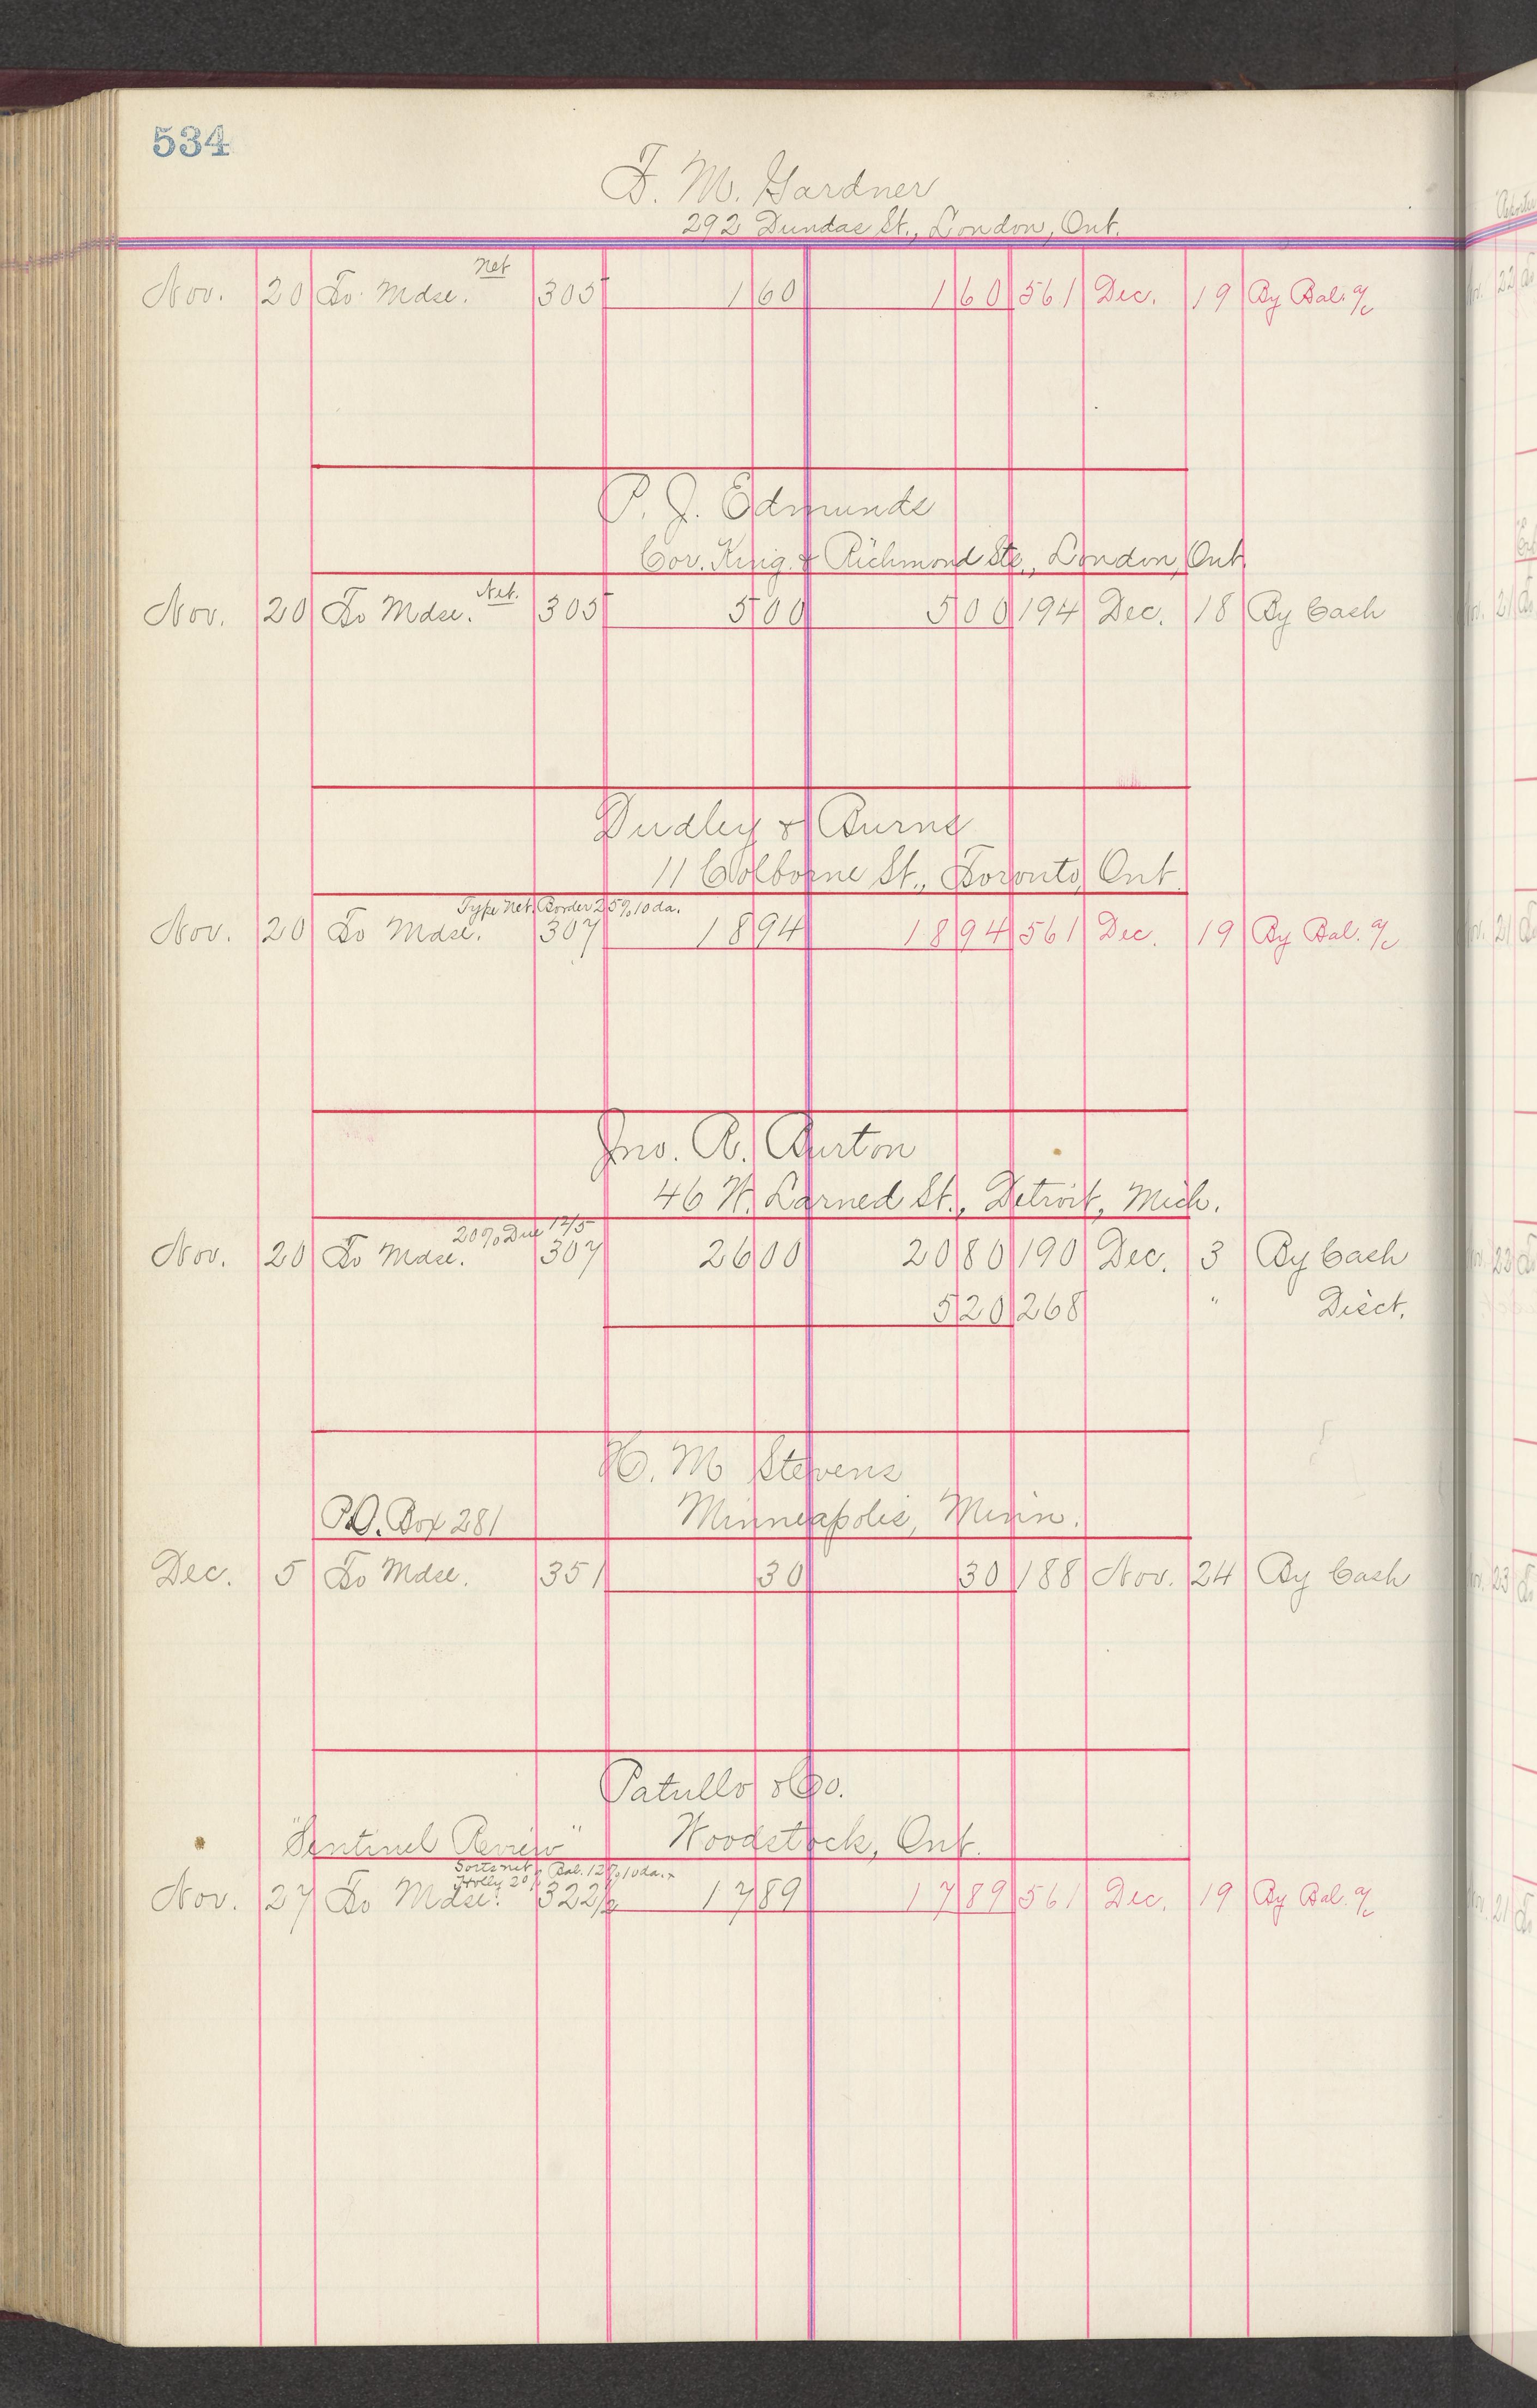 534
F. M. Gardner
292 Dundas St., London, Ont.
Net
Nov. 20 To Mdse. 305 1 60 1 60 561 Dec. 19 By Bal. a/c
P. J. Edmunds
Cor. King & Richmond Sts., London, Ont.
Net.
Nov. 20 To Mdse. 305 5 00 5 00 194 Dec. 18 By Cash
Dudley & Burns
11 Colborne St., Toronto, Ont
Type Net, Border 25% 10 da.
Nov. 20 To Mdse. 307 18 94 18 94 561 Dec. 19 By Bal. a/c
Jno. R. Burton
46 W. Larned St., Detroit, Mich.
20% Due 12/5
Nov. 20 To Mdse. 307 26 00 20 80 190 Dec. 3 By Cash
5 20 268 " Disct.
H. M. Stevens
P.O. Box 281 Minneapolis, Minn.
Dec. 5 To Mdse. 351 30 30 188 Nov. 24 By Cash
Patullo & Co.
"Sentinel Review" Woodstock, Ont.
Sorts net, Bal. 12% 10 da.
Holly 20%
Nov. 27 To Mdse. 322/2 17 89 17 89 561 Dec. 19 By Bal. a/c